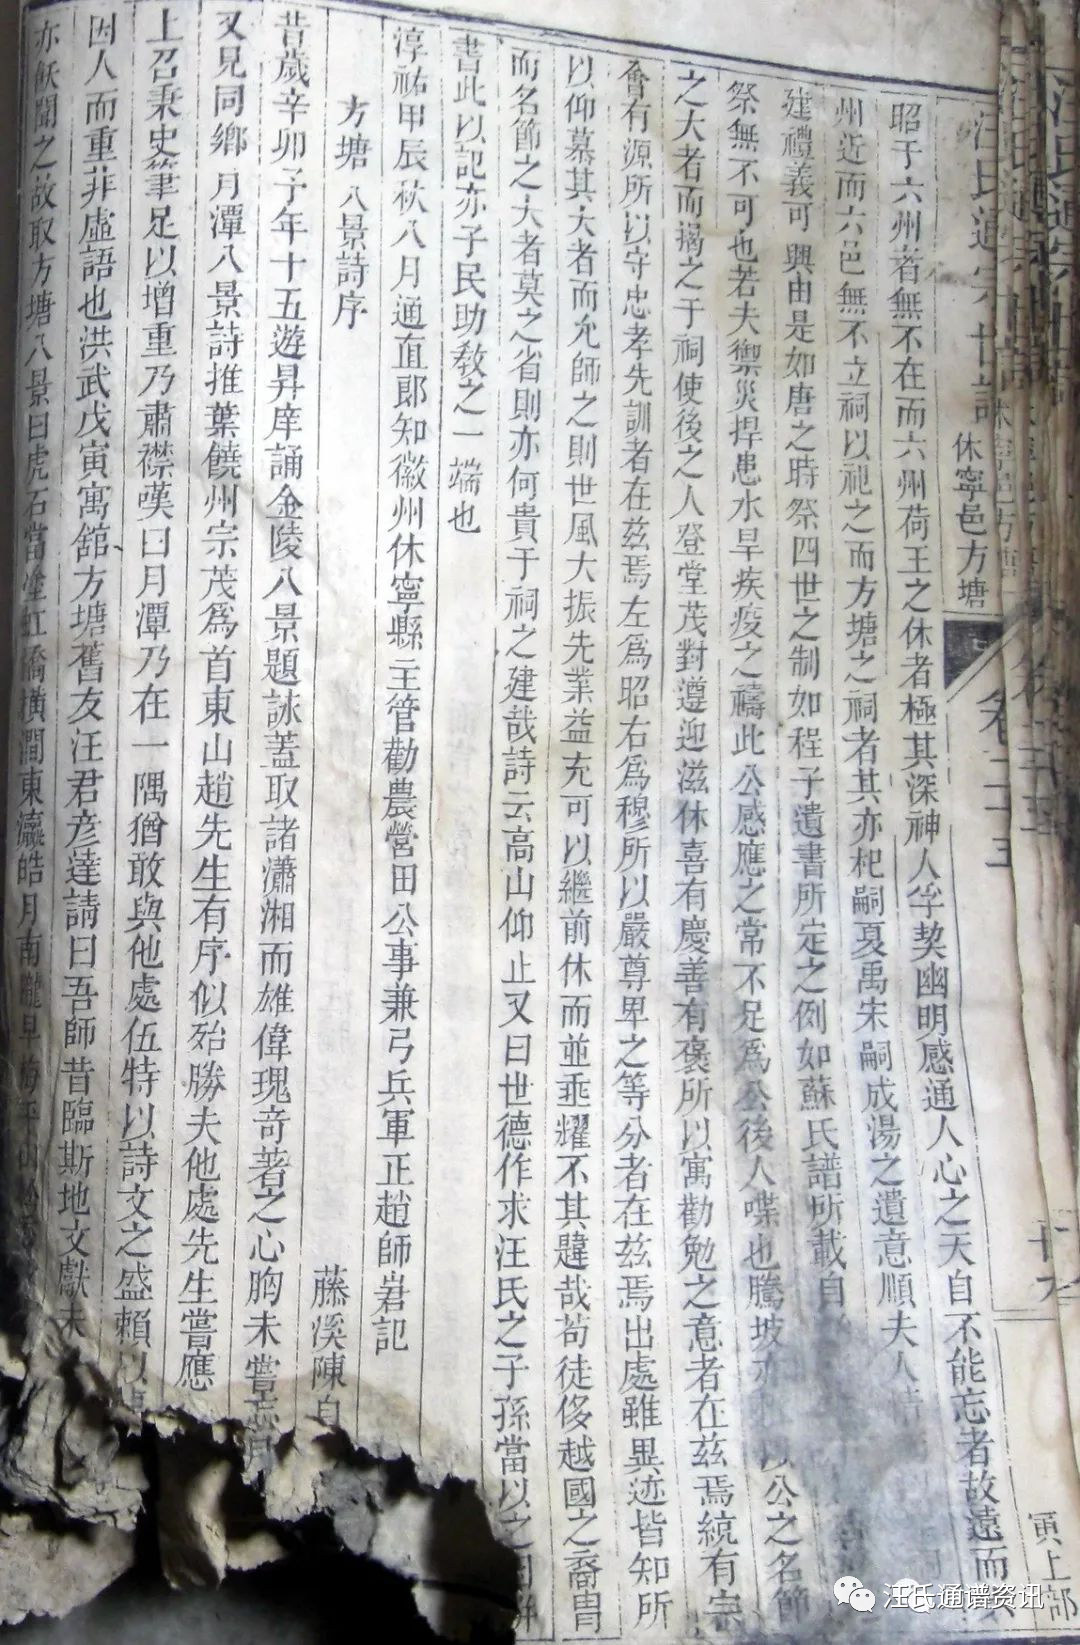 汪氏通宗世譜 休寧邑方塘 卷二十五 十九 寅上部
昭于六州者無不在而六州荷王之休者極其深神人孚契幽明感通人心之天自不能忘者故遠而
州近而六邑無不立祠以祀之而方塘之祠者其亦杞嗣夏禹宋嗣成湯之遺意順夫人情
建禮義可興由是如唐之時祭四世之制如程子遺書所定之例如蘇氏譜所載自
祭無不可也若夫禦災捍患水旱疾疫之禱此公感應之常不足為公後人喋也騰坡亦 以公之名節
之大者而揭之于祠使後之人登堂茂對遵迎滋休喜有慶善有褒所以寓勸勉之意者在茲焉統有宗
會有源所以守忠孝先訓者在茲焉左為昭右為穆所以嚴尊卑之等分者在茲焉出處雖異迹皆知所
以仰慕其大者而允師之則世風大振先業益充可以繼前休而並垂耀不其韙哉苟徒侈越國之裔冑
而名節之大者莫之省則亦何貴于祠之建哉詩云高山仰止又曰世德作求汪氏之子孫當以之
書此以記亦子民助教之一端也
淳祐甲辰秋八月通直郎知徽州休寧縣主管勸農營田公事兼弓兵軍正趙師岩記
方塘八景詩序
藤溪陳自
昔歲辛卯予年十五遊昇庠誦金陵八景題詠蓋取諸瀟湘而雄偉瑰奇著之心胸未嘗忘
又見同鄉月潭八景詩推葉饒州宗茂為首東山趙先生有序似殆勝夫他處先生嘗應
上召秉史筆足以增重乃肅襟嘆曰月潭乃在一隅猶敢與他處伍特以詩文之盛賴以
因人而重非虛語也洪武戊寅寓館方塘舊友汪君彥達請曰吾師昔臨斯地文獻未
亦飫聞之故取方塘八景曰虎石當塗虹橋橫澗東瀛皓月南隴早梅
汪氏通譜资讯